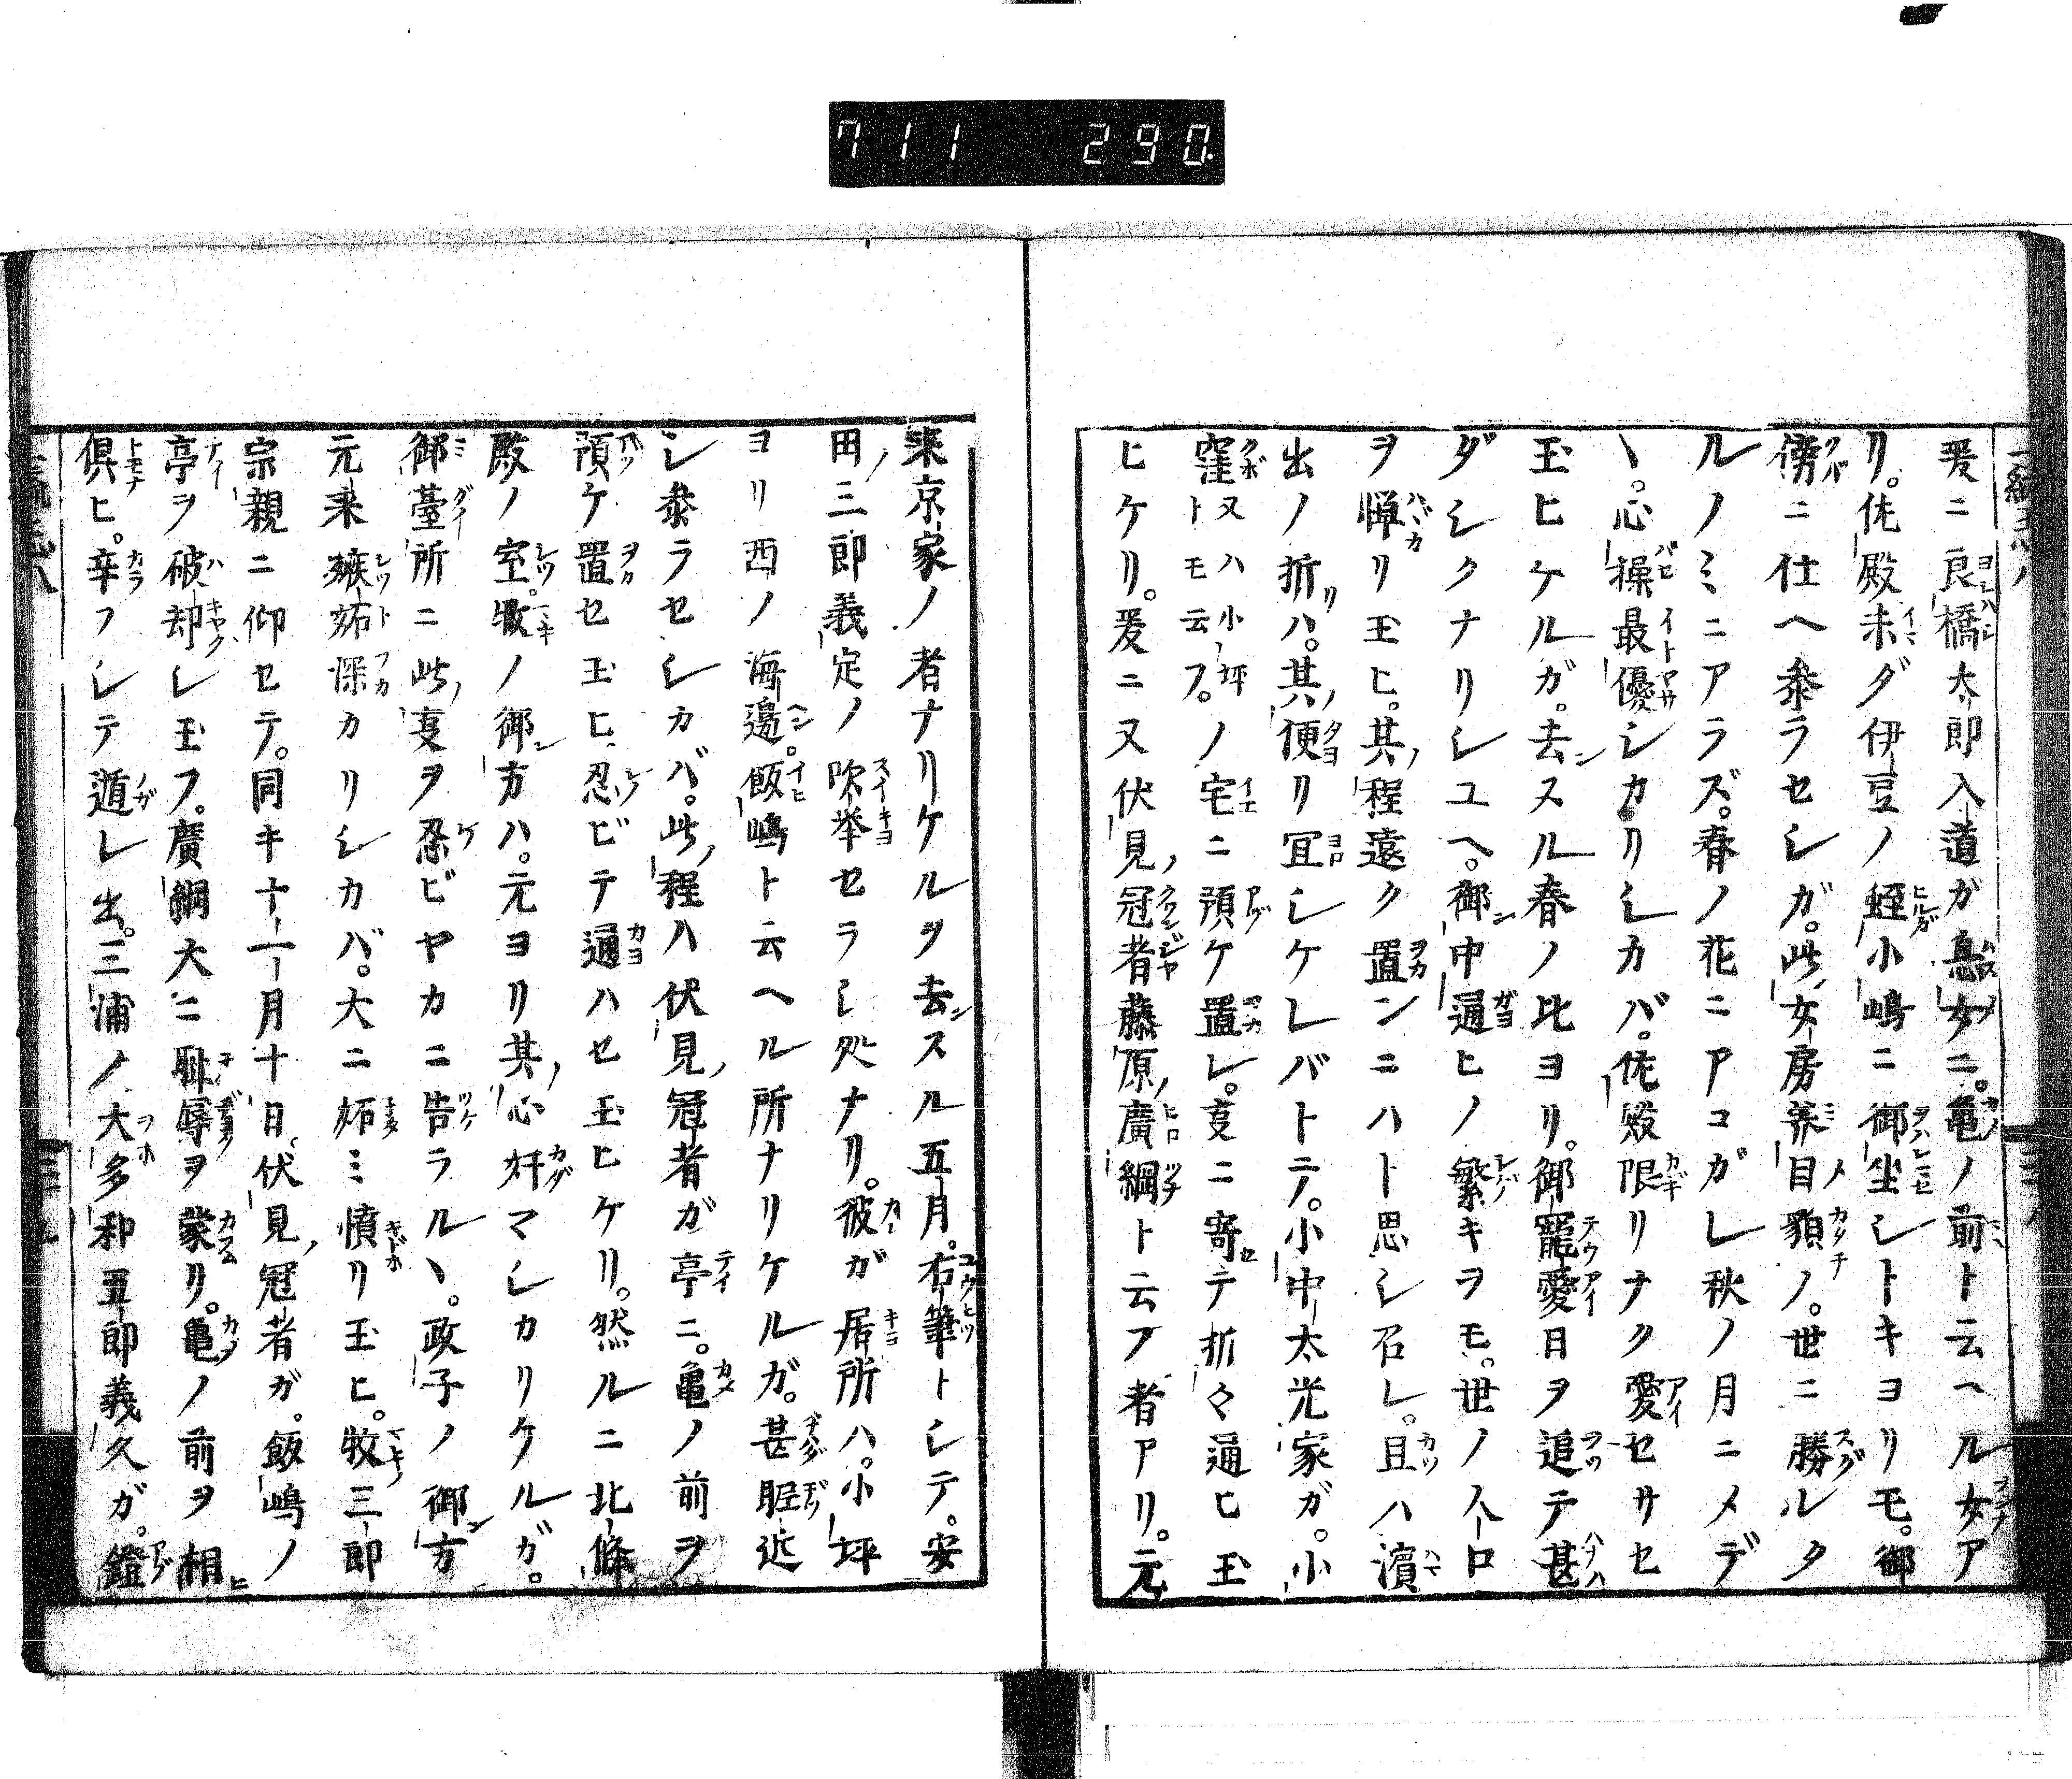 711 290.
爰ニ良橋太郎入道ガ息女ニ。亀ノ前ト云ヘル女ア
リ。佐殿未ダ伊豆ノ蛭小嶋ニ御坐シトキヨリモ。御
傍ニ仕ヘ参ラセシガ。此女房美目㒵ノ。世ニ勝レタ
ルノミニアラズ。春ノ花ニアコガレ秋ノ月ニメデ
ヽ。心操最優シカリシカバ。佐殿限リナク愛セサセ
玉ヒケルガ。去ヌル春ノ比ヨリ。御寵愛日ヲ追テ甚
ダシクナリシユヘ。御中通ヒノ繁キヲモ。世ノ人口
ヲ憚リ玉ヒ。其程遠ク置ンニハト思シ召レ。且ハ濱
出ノ折ハ。其便リ冝シケレバトテ。小中太光家ガ。小
窪又ハ小坪トモ云フ。ノ宅ニ預ケ置レ。事ニ寄テ折々通ヒ玉
ヒケリ。爰ニ又伏見冠者藤原廣綱ト云フ者アリ。元
来京家ノ者ナリケルヲ去ヌル五月。右筆トシテ。安
田三郎義定ノ吹挙セラレシ処ナリ。彼ガ居所ハ。小坪
ヨリ西ノ海邉。飯嶋ト云ヘル所ナリケルガ。甚眤近
シ参ラセシカバ。此程ハ伏見冠者ガ亭ニ。亀ノ前ヲ
預ケ置セ玉ヒ、忍ビテ通ハセ玉ヒケリ。然ルニ北條
殿ノ室。牧ノ御方ハ。元ヨリ其心奸マシカリケルガ。
御臺所ニ此事ヲ忍ビヤカニ告ラルヽ。政子ノ御方
元来嫉妬深カリシカバ。大ニ妬ミ憤リ玉ヒ。牧三郎
宗親ニ仰セテ。同キ十一月十日。伏見冠者ガ。飯嶋ノ
亭ヲ破却シ玉フ。廣綱大ニ耻辱ヲ蒙リ。亀ノ前ヲ相
倶ヒ。辛フシテ遁レ出。三浦ノ大多和五郎義久ガ。鐙